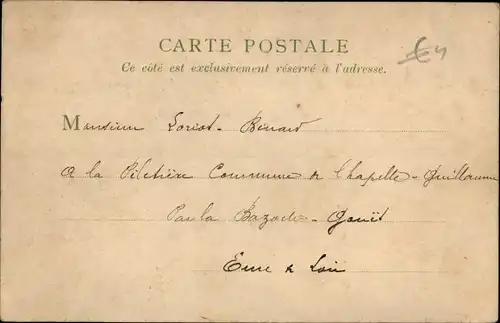 CARTE POSTALE
Ce côté est exclusivement réservé à l'adresse.
Monsieur Loriot-Benard
A la Piletière Commune de Chapelle-Guillaume
Par la Bazoche-Gouët
Eure & Loir